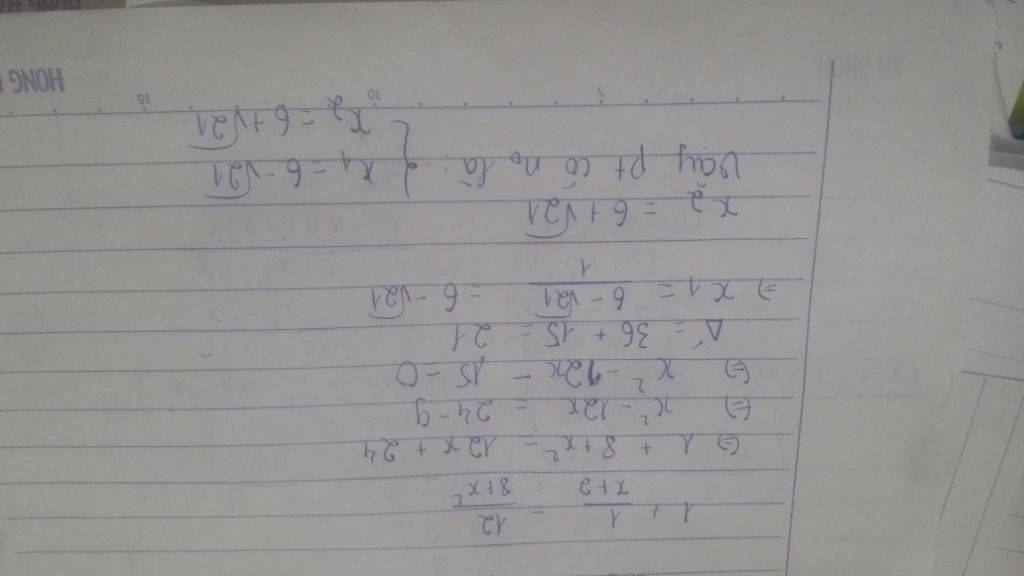 1 + 1/x+2 = 12/8+x²
(=) 1 + 8+x² = 12x + 24
(=) x² - 12x = 24-9
(=) x² - 12x - 15 - 0
Δ' = 36 + 15 = 21
=) x1 = 6-√21/1 = 6-√21
x2 = 6+√21
Vậy pt có n0 là: { x1 = 6-√21
x2 = 6+√21
5 10 15
HONG